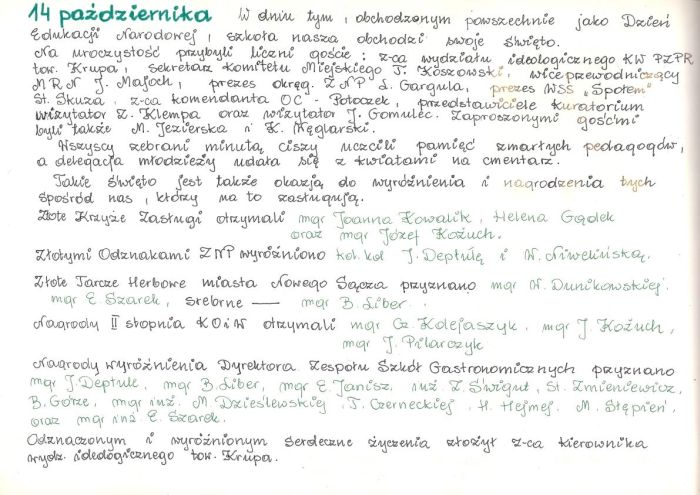 14 października W dniu tym, obchodzonym powszechnie jako Dzień
Edukacji Narodowej, szkoła nasza obchodzi swoje święto.
Na uroczystość przybyli liczni goście: z-ca wydziału ideologicznego KW PZPR
tow. Krupa, sekretarz Komitetu Miejskiego T. Koszowski, wiceprzewodniczący
MRN J. Majoch, prezes okręg. ZNP S. Gargula, prezes WSS „Społem"
St. Skuza, z-ca komendanta OC - Potoczek, przedstawiciele kuratorium
wizytator Z. Klempa oraz wizytator J. Gomulec. Zaproszonymi gośćmi
byli także M. Jezierska i K. Węglarski.
Wszyscy zebrani minutą ciszy uczcili pamięć zmarłych pedagogów,
a delegacja młodzieży udała się z kwiatami na cmentarz.
Takie święto jest także okazją do wyróżnienia i nagrodzenia tych
spośród nas, którzy na to zasługują.
Złote Krzyże Zasługi otrzymali mgr Joanna Kowalik, Helena Gądek
oraz mgr Józef Kożuch.
Złotymi Odznakami ZNP wyróżniono kol. kol. J. Deptułę i W. Niwelińską.
Złote Tarcze Herbowe miasta Nowego Sącza przyznano mgr W. Dunikowskiej,
mgr E. Szarek, srebrne — mgr B. Liber.
Nagrody II stopnia KOiW otrzymali mgr Cz. Kolejaszyk, mgr J. Kożuch,
mgr J. Pilarczyk
Nagrody wyróżnienia Dyrektora Zespołu Szkół Gastronomicznych przyznano
mgr J. Deptule, mgr B. Liber, mgr E. Janisz, inż. Z. Świgut, St. Zmieniewicz,
B. Górze, mgr inż. M. Dzieślewskiej, T. Czerneckiej, H. Hejmej, M. Stępień,
oraz mgr inż. E. Szarek.
Odznaczonym i wyróżnionym serdeczne życzenia złożył z-ca kierownika
wydz. ideologicznego tow. Krupa.